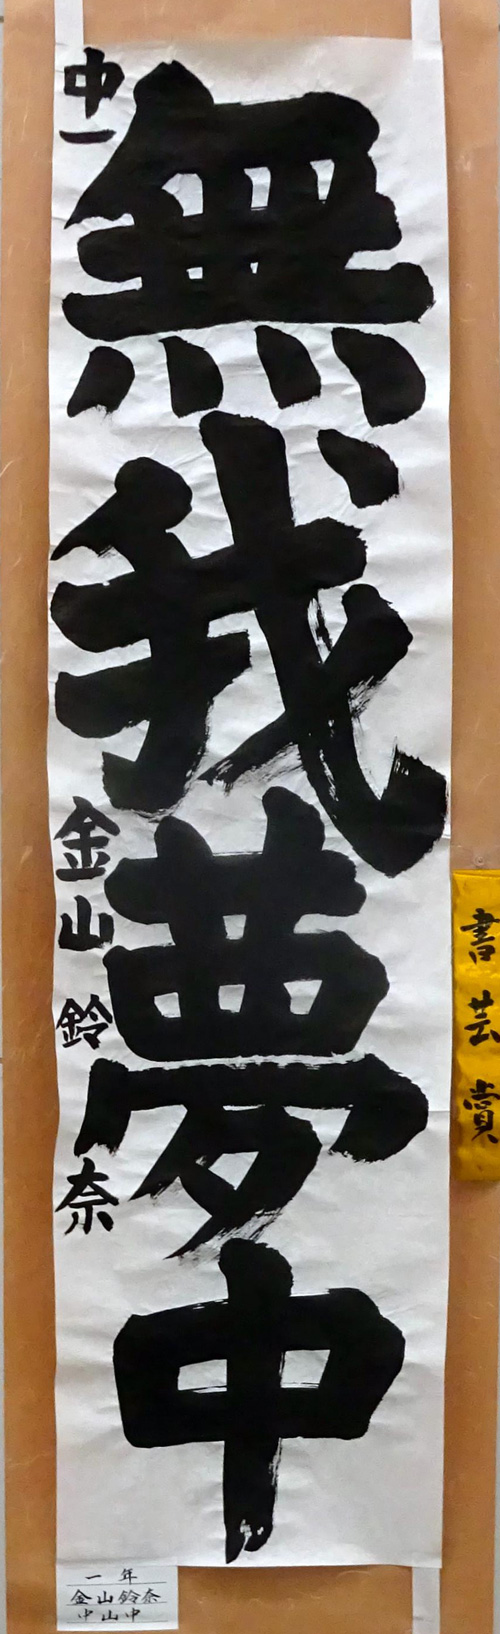 無我夢中
中一 金山鈴奈
書芸賞
一年
金山鈴奈
中山中